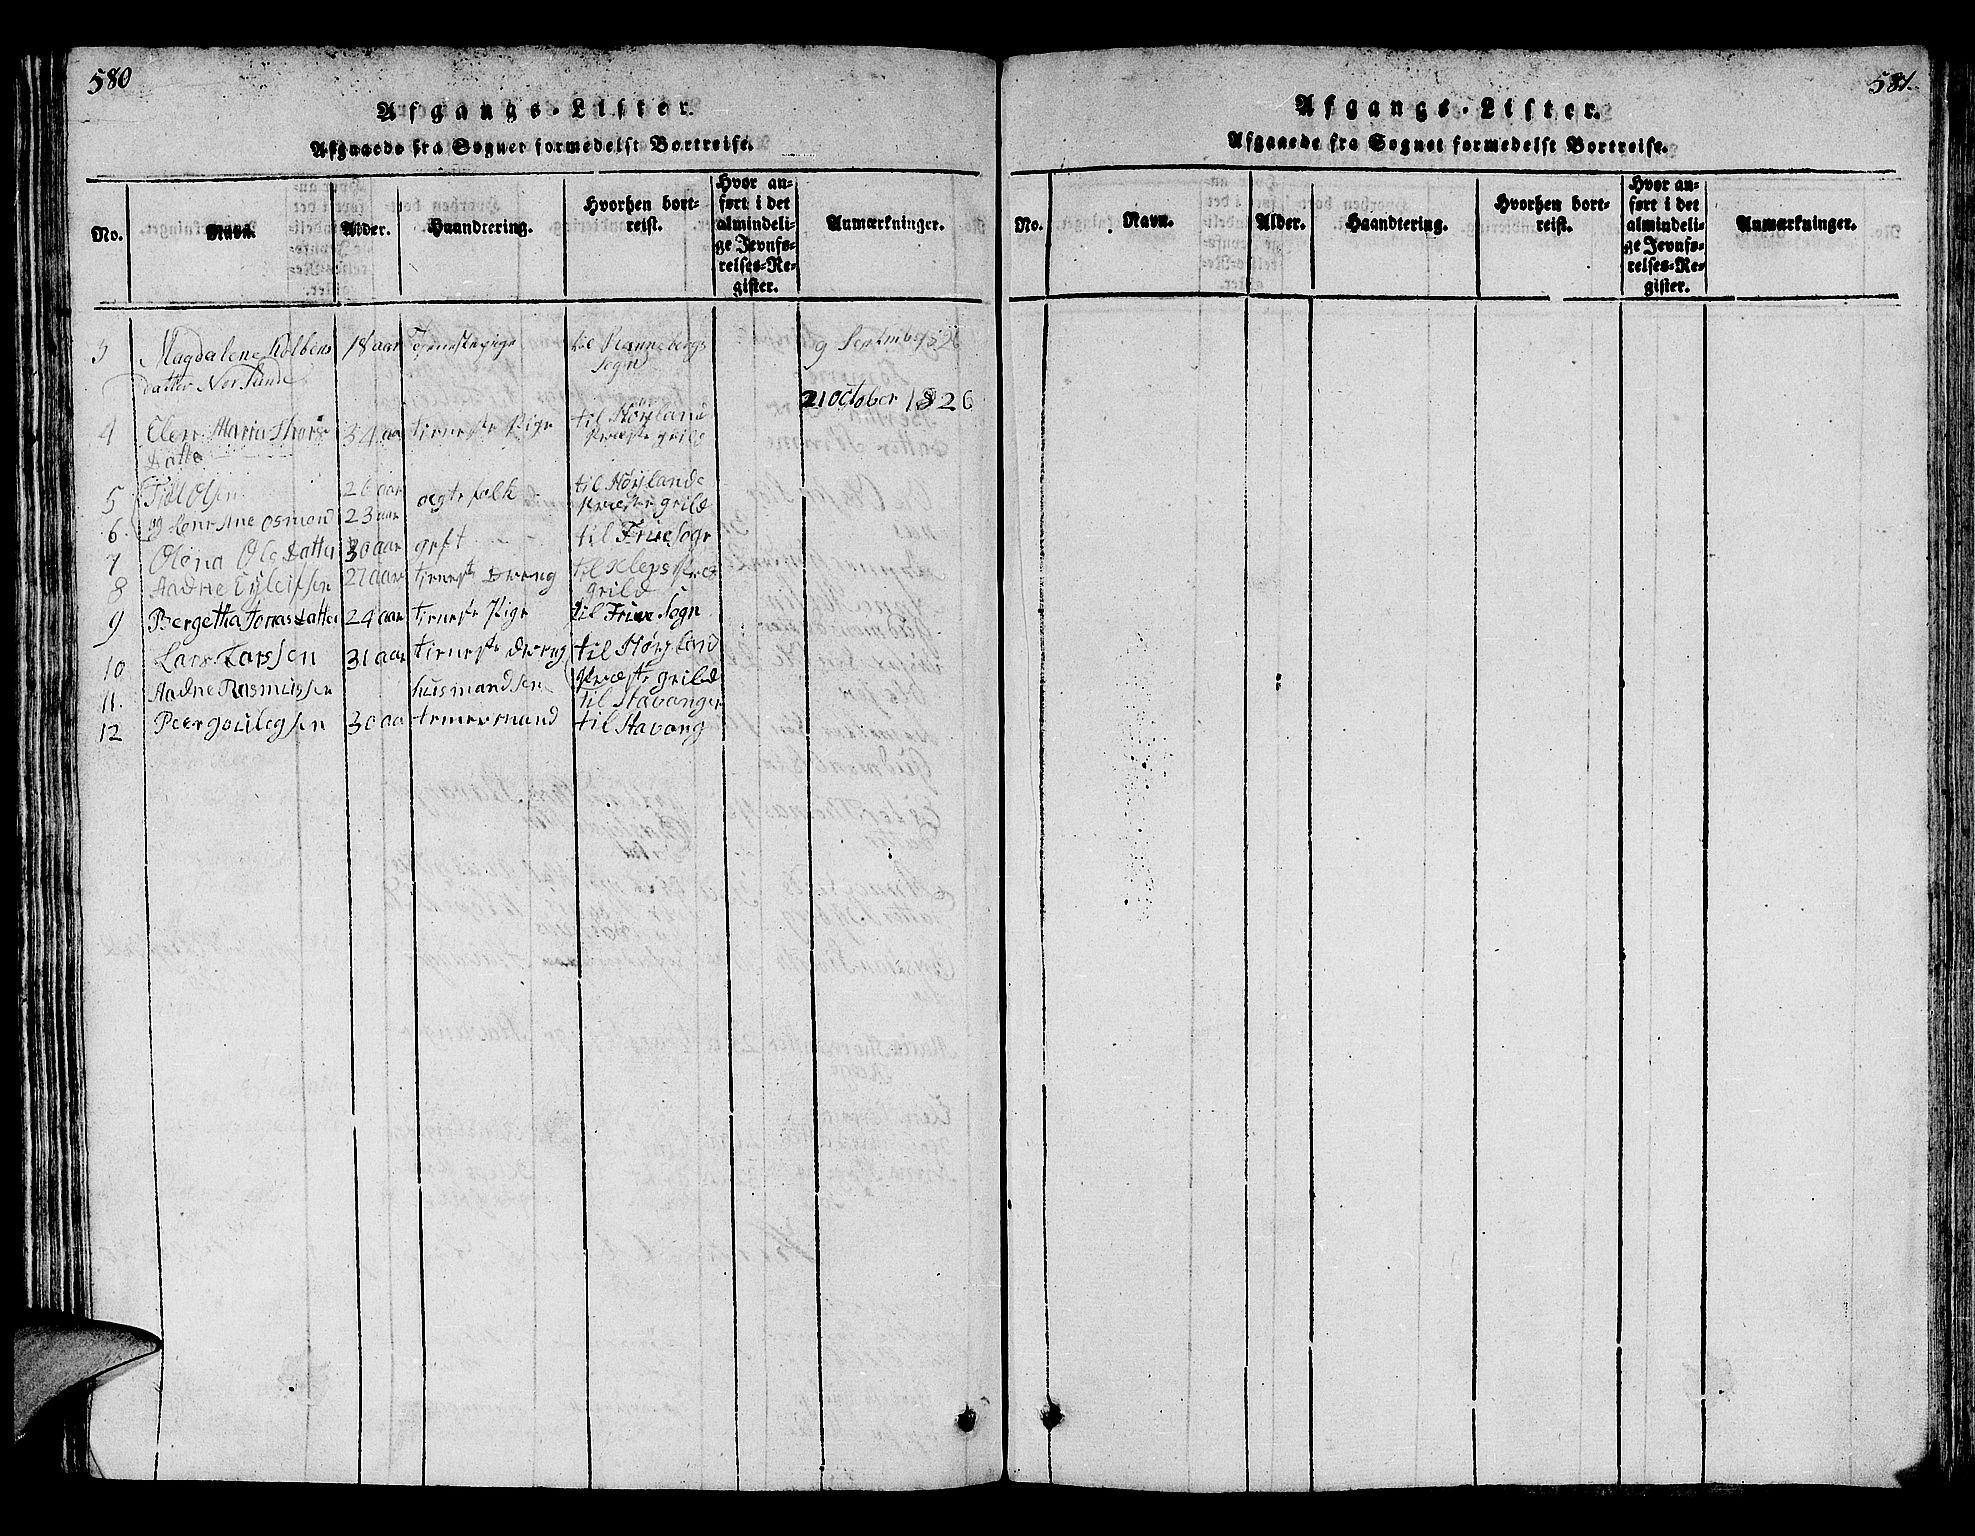 580
Afgangs-Lister.
Afgaaede fra Sognet formedelst Bortreise.
No. Navn. Alder. Haandtering. Hvorhen bortreist. Hvor anført i det almindelige Jevnførelses-Register. Anmærkninger.
3 Magdalene 18 aar Tjenestepige til Renneberg 9 September
datter Sogn
21 October 1826
4 Elen Maria Thors 34 aar tieneste Pige til Høysland
Datter Præste grild
5 Olsen 26 aar ægte folk til Høyslands
6 og Lene Ane Osmond 23 aar Præste grild
7 Olena Ols Datter 30 aar gift til Frue Sogn
8 Aadne Eyleifsen 27 aar tieneste Dreng til Kleps Præste
grild
9 Bergetha Jonas Datter 24 aar tieneste Pige til Frue Sogn
10 Lars Larssen 31 aar tieneste Dreng til Høysland
Præste grild
11. Aadne Rasmussen husmandsen til Stavanger
12 Peer 30 aar til Stavang
581.
Afgangs-Lister.
Afgaaede fra Sognet formedelst Bortreise.
No. Navn. Alder. Haandtering. Hvorhen bortreist. Hvor anført i det almindelige Jevnførelses-Register. Anmærkninger.